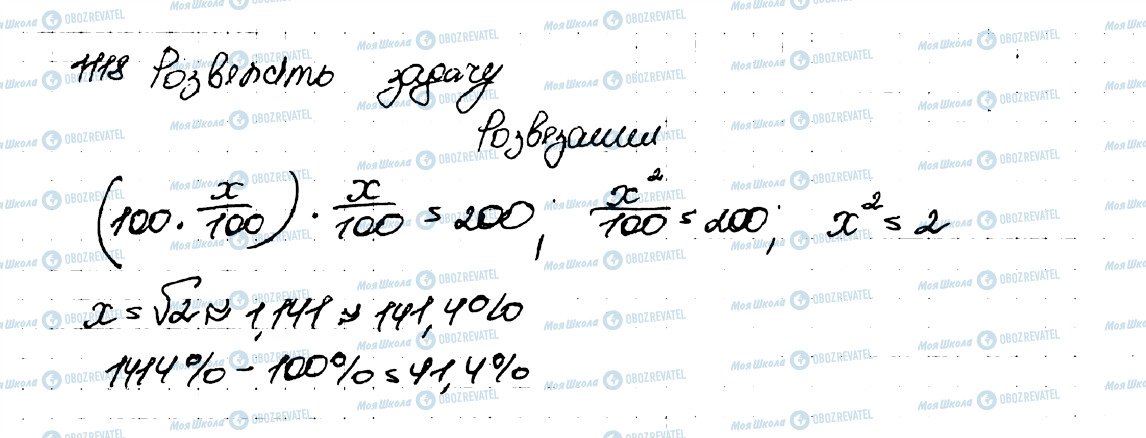 1118 Розвязать задачу
Розвязання
(100 · x/100) · x/100 = 200; x²/100 = 200; x² = 2
x = √2 ≈ 1,141 ≈ 141,4%
1414% - 100% = 41,4%